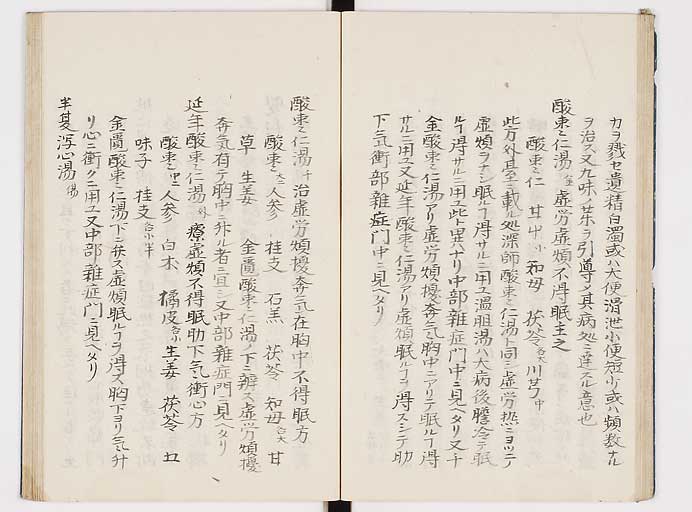 カヲ戮セ遺精白濁或ハ大便滑泄小便短少或ハ頻数ナル
ヲ治ス又九味ノ藥ヲ引導ノ其病処ニ達スル意也
酸棗仁湯 虚労虚煩不得眠主之
酸棗仁 甘 中 小 知母 茯苓 各大 川芎 中
此方外甚ニ載ル処深師酸棗仁湯ト同シ虚労熱ニヨツテ
虚煩ヲナシ眠ルヿ得サルニ用ユ温胆湯ハ大病後膽冷テ眠
ルヿ得サルニ用ユ此ト異ハナリ中部雜症門中ニ見ヘタリ又千
金酸棗仁湯アリ虚労煩擾奔氣胸中ニアリテ眠ルヿ得
サルニ用ユ又延年酸棗仁湯アリ虚煩眠ルヿヲ得スシテ肋
下氣衝部雜症門中ニ見ヘタリ
酸棗仁湯 千 治虚労煩擾奔氣在胸中不得眠方
酸棗 大 人参 桂支 石羔 茯苓 知母 各大 甘
草 生姜 金匱酸棗仁湯ノ下ニ辨ス虚労煩擾
奔氣有テ胸中ニ升ル者ニ宜シ又中部雜症門ニ見ヘタリ
延年酸棗仁湯 外 療虚煩不得眠肋下氣衝心方
酸棗 中 人参 白朮 橘皮 各小 生姜 茯苓 五
味子 桂支 各小半
金匱酸棗仁湯ノ下ニ辨ス虚煩眠ルヿヲ得ス胸下ヨリ氣升
リ心ニ衝クニ用ユ又中部雜症門ニ見ヘタリ
半夏瀉心湯 傷